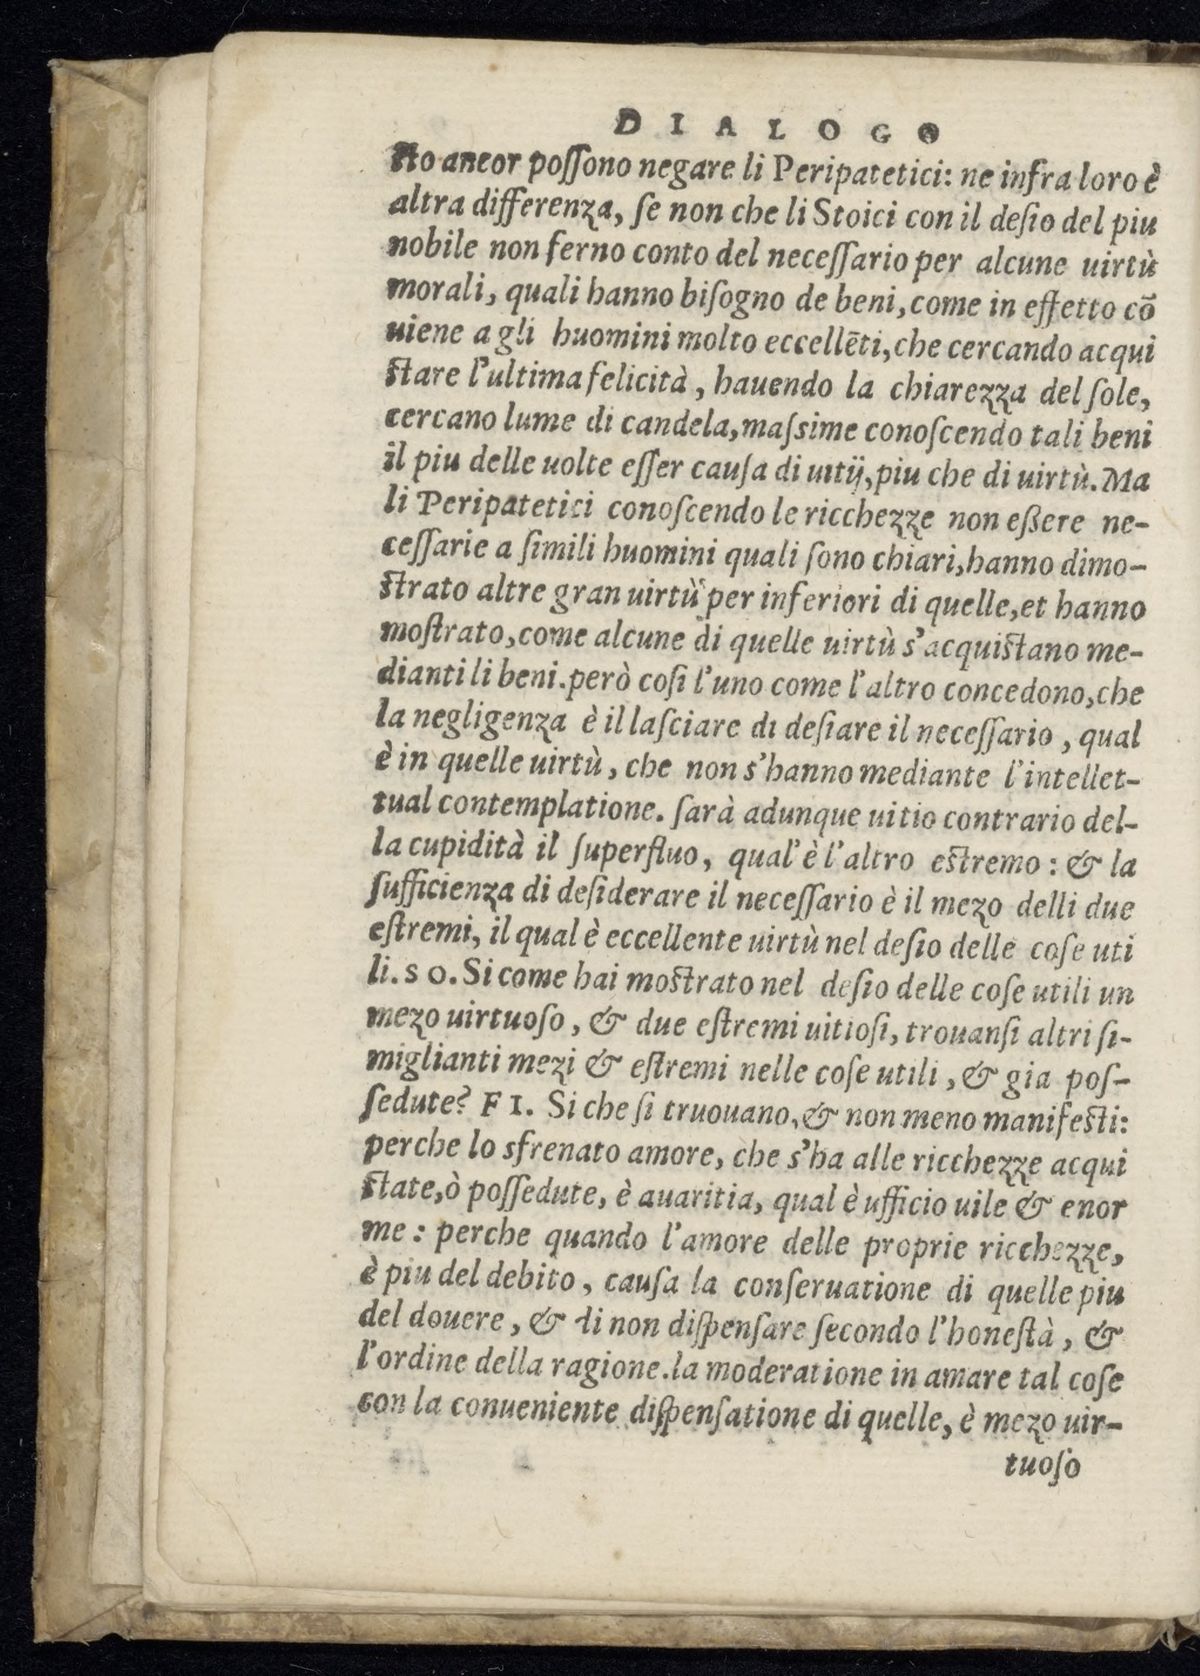 DIALOGO
sto ancor possono negare li Peripatetici: ne infra loro è
altra differenza, se non che li Stoici con il desio del piu
nobile non ferno conto del necessario per alcune uirtù
morali, quali hanno bisogno de beni, come in effetto cō
uiene a gli huomini molto eccellēti, che cercando acqui
stare l'ultima felicità, hauendo la chiarezza del sole,
cercano lume di candela, massime conoscendo tali beni
il piu delle uolte esser causa di uitij, piu che di uirtù. Ma
li Peripatetici conoscendo le ricchezze non eßere ne-
cessarie a simili huomini quali sono chiari, hanno dimo-
strato altre gran uirtù per inferiori di quelle, et hanno
mostrato, come alcune di quelle uirtù s'acquistano me-
dianti li beni. però cosi l'uno come l'altro concedono, che
la negligenza è il lasciare di desiare il necessario, qual
è in quelle uirtù, che non s'hanno mediante l'intellet-
tual contemplatione. sarà adunque uitio contrario del-
la cupidità il superfluo, qual'è l'altro estremo: & la
sufficienza di desiderare il necessario è il mezo delli due
estremi, il qual è eccellente uirtù nel desio delle cose uti
li. SO. Si come hai mostrato nel desio delle cose utili un
mezo uirtuoso, & due estremi uitiosi, trouansi altri si-
miglianti mezi & estremi nelle cose utili, & gia pos-
sedute? FI. Si che si truouano, & non meno manifesti:
perche lo sfrenato amore, che s'ha alle ricchezze acqui
state, ò possedute, è auaritia, qual è ufficio uile & enor
me: perche quando l'amore delle proprie ricchezze,
è piu del debito, causa la conseruatione di quelle piu
del douere, & di non dispensare secondo l'honestà, &
l'ordine della ragione. la moderatione in amare tal cose
con la conueniente dispensatione di quelle, è mezo uir-
tuoso